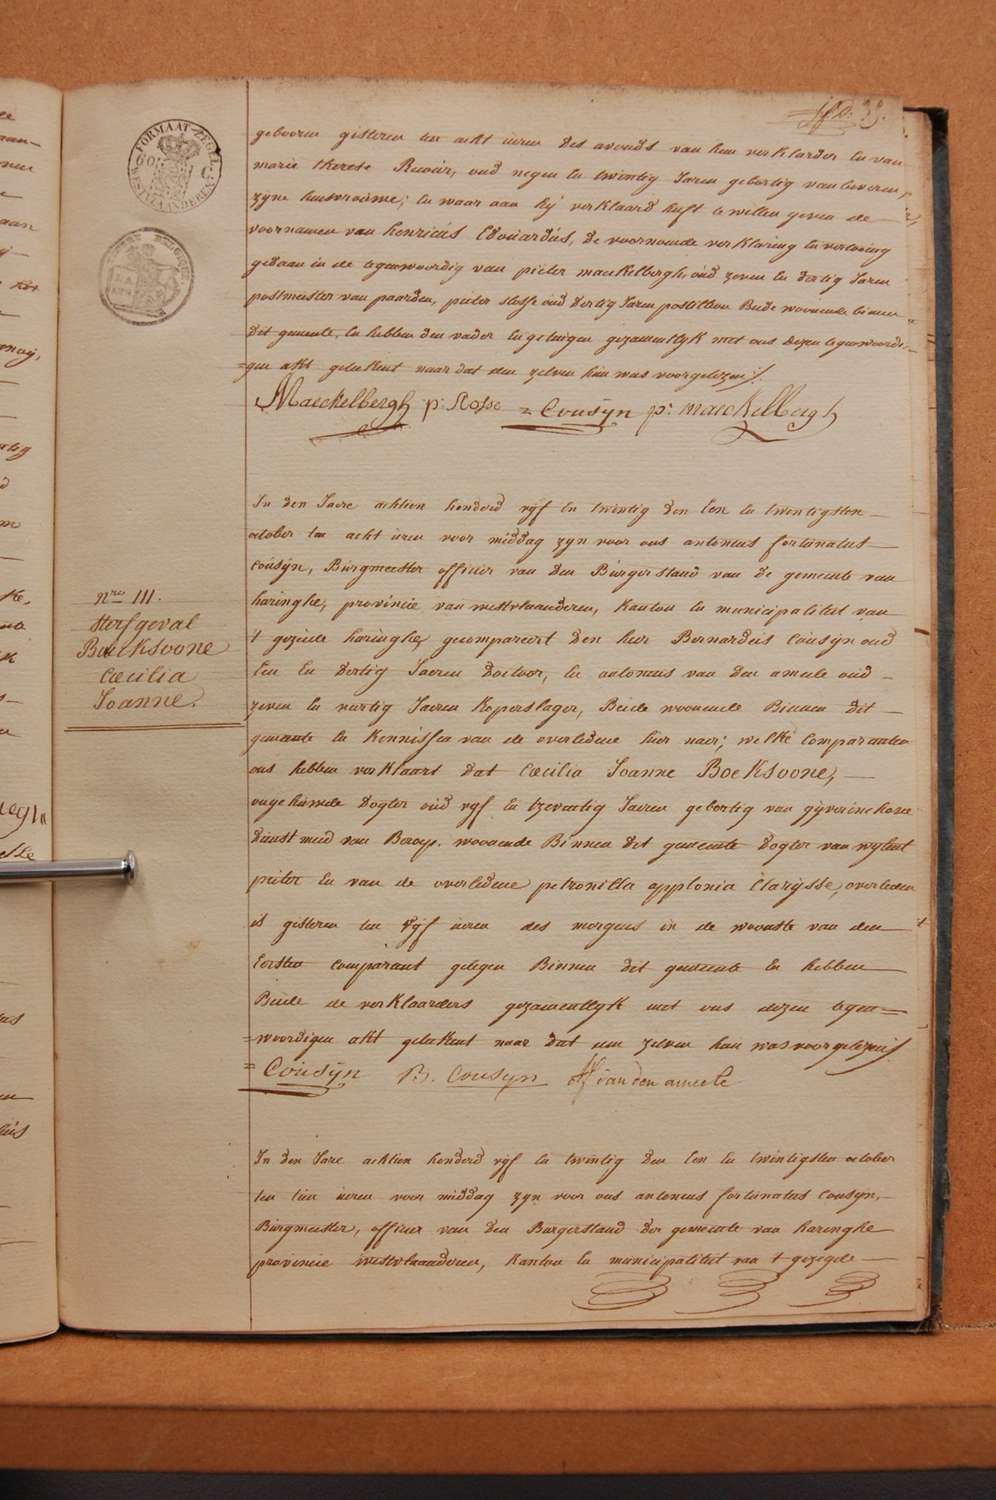 fl. 39.
FORMAAT-ZEGEL
60 C.
WESTVLAANDEREN
gebooren gisteren ten acht uren des avonds van hem verklarder en van
marie therese Ruvoir, oud negen en twintig Jaren gebortig van
zyne huisvrouwe; en waar aan hij verklaard heeft te willen geven de
voornamen van henricus Edouardus, de voornoemde verklaring en verlooning
gedaan in de tegenwoordig van pieter maeckelbergh oud zeven en dertig Jaren
postmeester van paarden, pieter slosse oud dertig Jaren postillion Beide woonende binnen
dit gemeente, en hebben den vader en getuigen gezamentlyk met ons dezen tegenwoordi-
=gen akt geteekent naar dat den zelven hun was voorgelezen
Maeckelbergh p: slosse = Cousyn p: maeckelbergh
In den Jaere achtien honderd vyf en twintig den Een en twintigsten
october ten acht uren voor middag zyn voor ons antonius fortunatus
Cousyn, Burgmeester officier van den Burgerstand van de gemeente van
haringhe, provincie van westvlaanderen, kanton en municipaliteit van
nro 111.
t gezeide haringhe, gecompareert den heer Bernardus Cousyn oud
sterfgeval
Boeksoone
Een en dertig Jaeren Doctoor, en antonius van den ameele oud
Cœcilia
Joanne.
zeven en veertig Jaeren koperslager, Beide woonende Binnen dit
gemeente en kennissen van de overledene hier naer; welke comparanten
ons hebben verklaart dat Cœcilia Joanne Boeksoone,
ongehuwde Dogter oud vyf en tzeventig Jaeren gebortig van gyverinchove
Dienst meid van Beroep, woonende Binnen dit gemeente Dogter van wylent
pieter en van de overledene petronilla applonia Clarysse, overleden
is gisteren ten vyf uren des morgens in de woonste van den
Eersten comparant gelegen Binnen dit gemeente En hebben
Beide de verklaarders gezamentlyk met ons dezen tegen=
=woordigen akt geteekent naar dat den zelven hun was voorgelezen
= Cousyn B. Cousyn A F van den ameele
In den Jare achtien honderd vyf en twintig den Een en twintigsten october
ten tien uren voor middag zyn voor ons antonius fortunatus Cousyn,
Burgmeester, officier van den Burgerstand der gemeente van haringhe
provincie westvlaanderen, kanton en municipaliteit van t gezegde